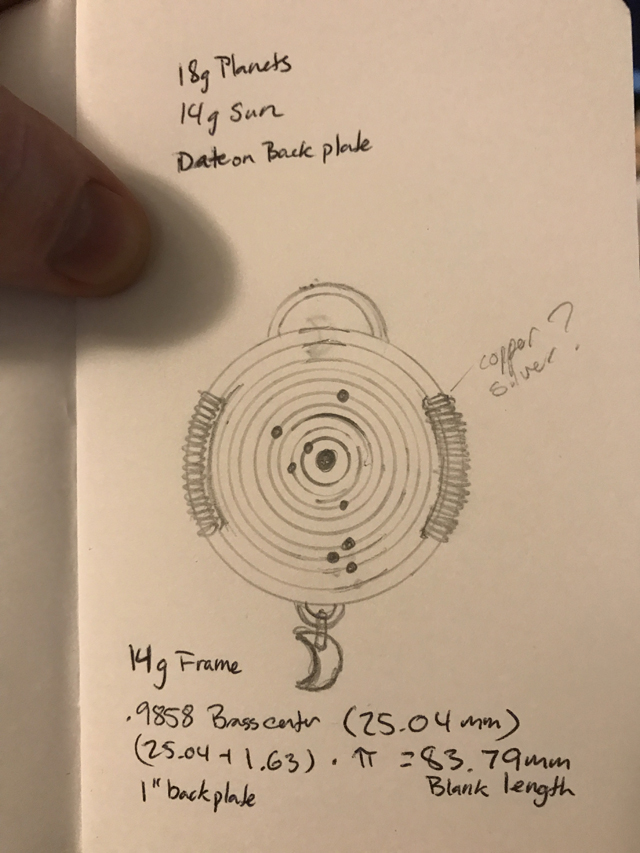 18g Planets
14g Sun
Date on Back plate
copper ?
silver ?
14g Frame
.9858 Brass center (25.04mm)
(25.04 + 1.63) · π = 83.79mm
1" backplate
Blank length